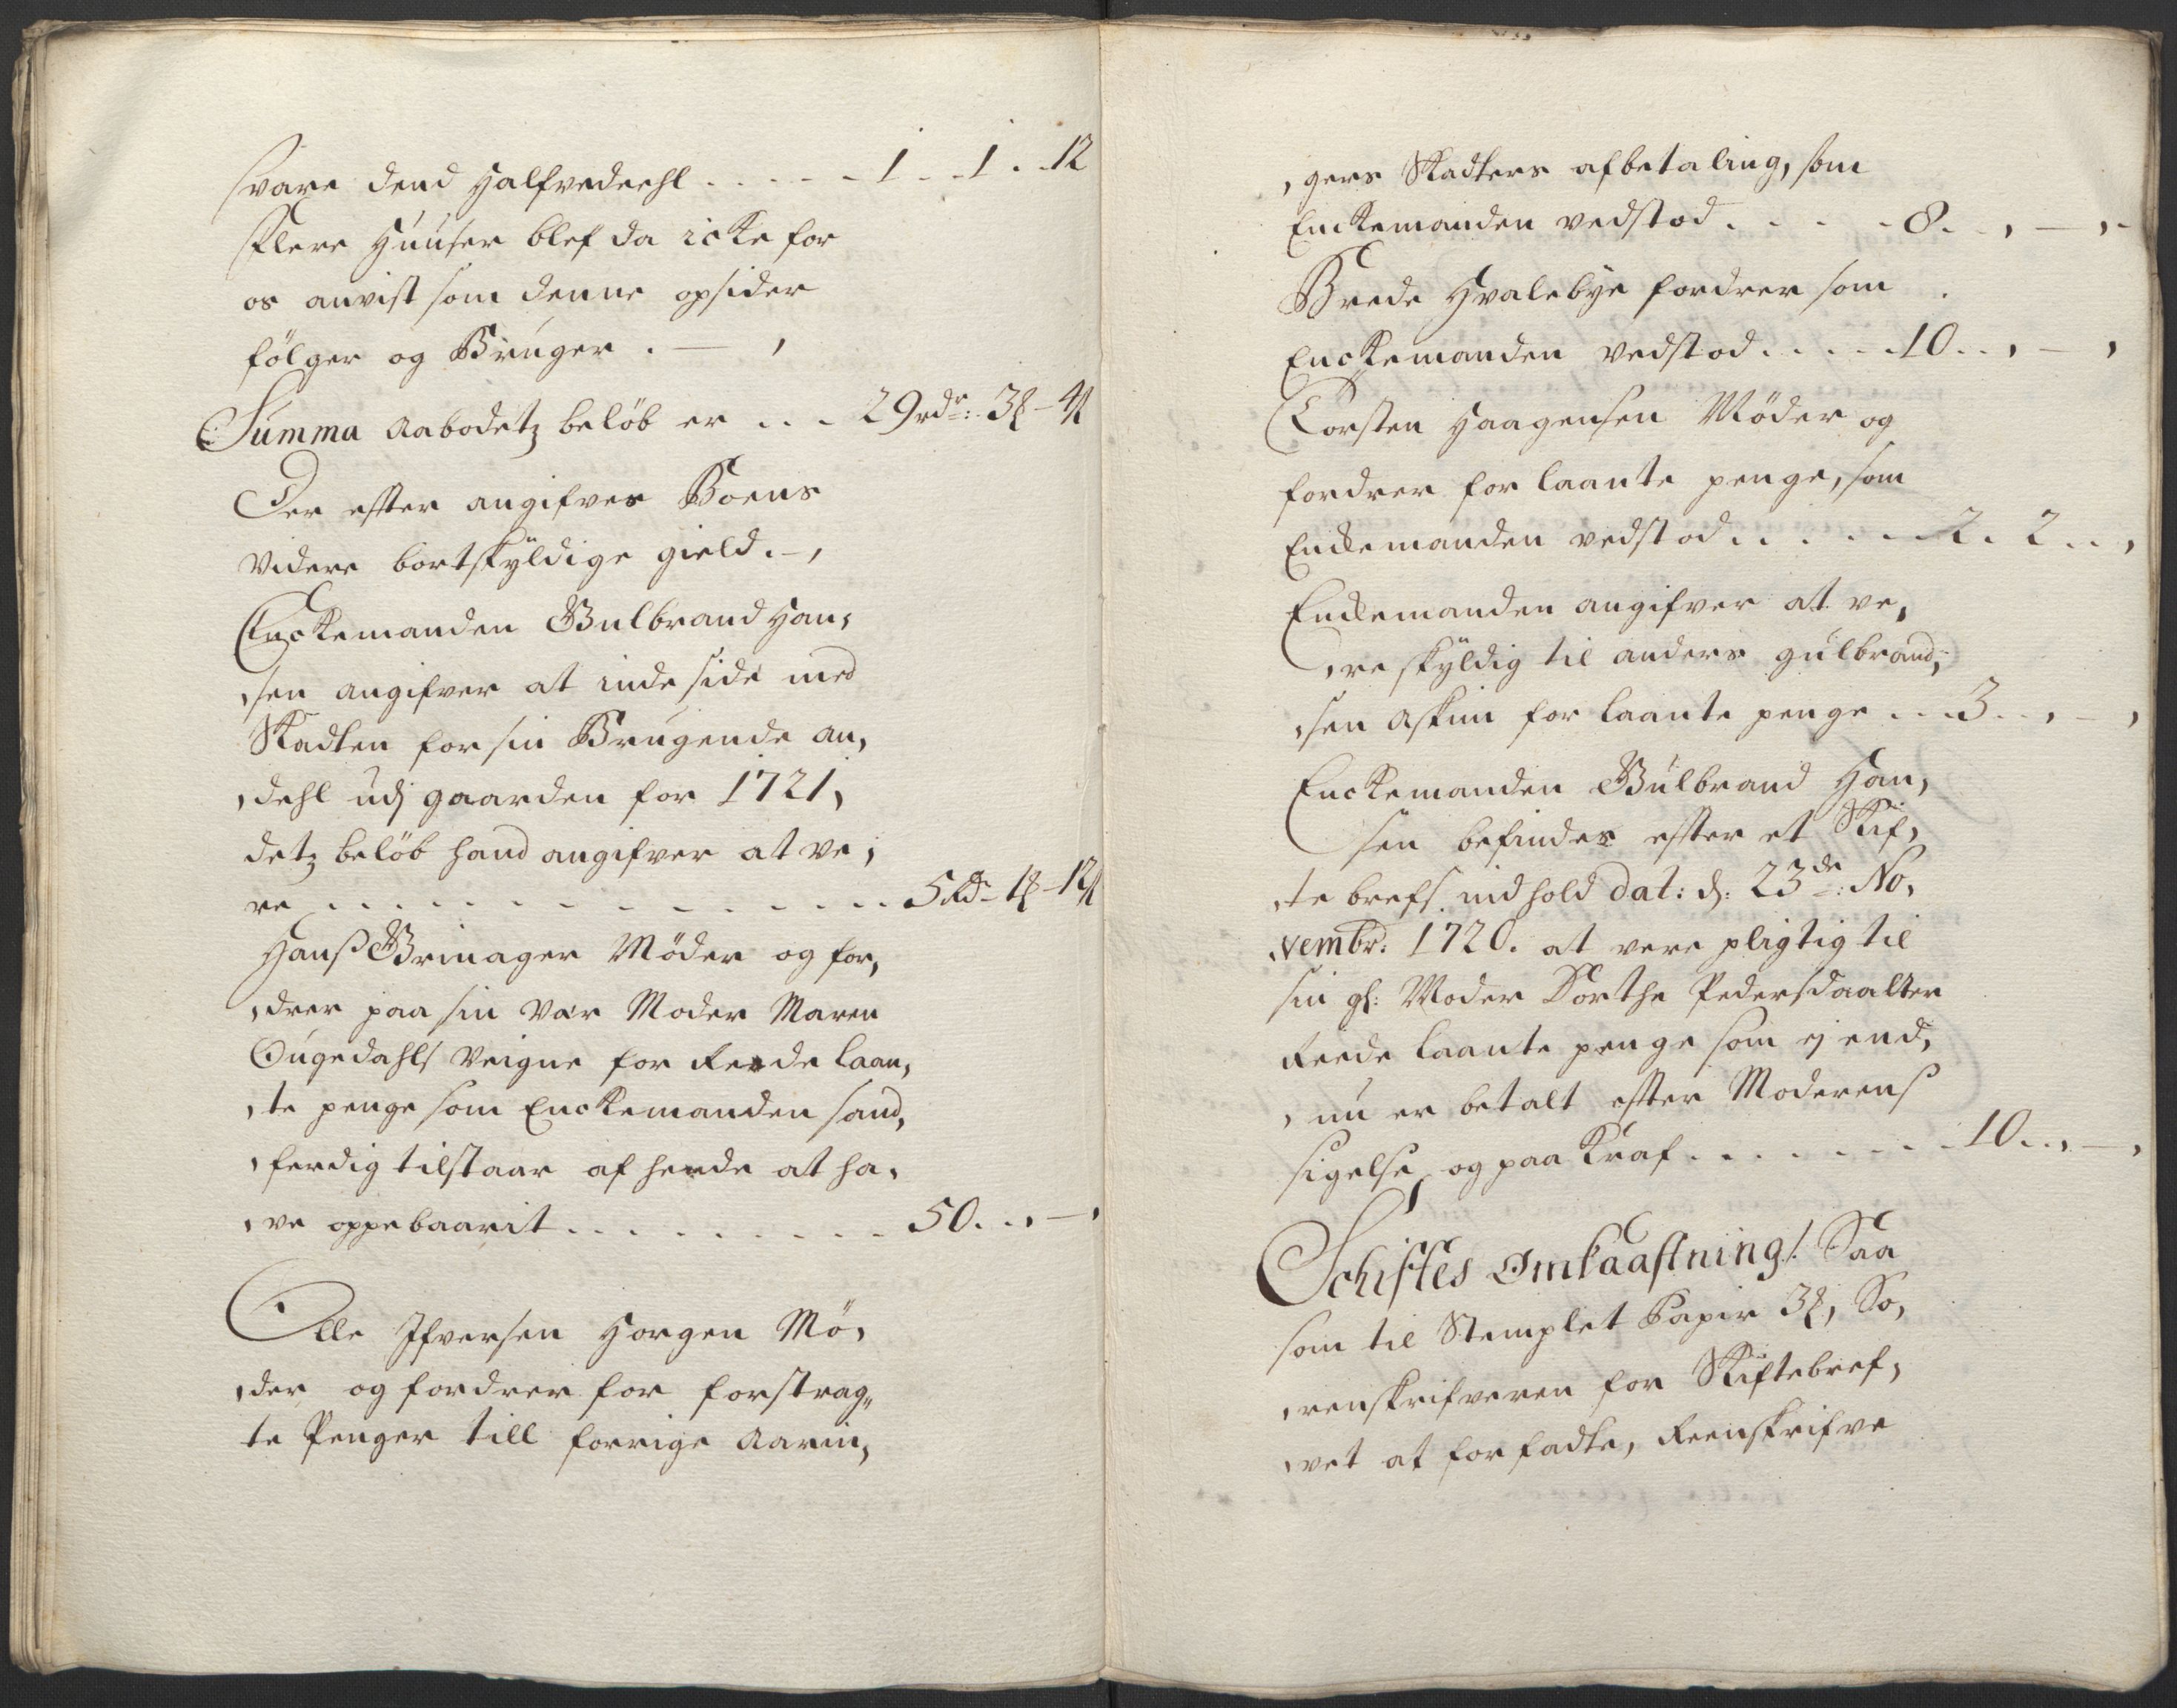 svare dend Halfvedeehl . . . . . 1 - 1 . 12
Flere Huuser blef da icke for
os anvist som denne opsider
følger og Bruger . — ,
Summa Aabodetz beløb er . . . 29 rdr: 3 ß - 4
Der effter angifves Boens
videre bortskÿldige gield . - ,
Enckemanden Gulbrand Han,
,sen angifver at inde side med
Skadten for sin Brugende an,
,dehl udj gaarden for 1721,
detz beløb hand angifver at ve,
re . . . . . . . . . . . 5 Rdr 1 - 12
Hanß Grinager Møder og for,
,drer paa sin Vær Moder Maren
veigne for Reede laan,
,te penge som Enckemanden sand,
,ferdig tilstaar af hende at ha,
,ve oppebaarit . . . . . . . . 50 . . , — ,
Olle Ifversen Horgen Mø,
,der og fordrer for forstrag,,
te Penger till forrige Aarin,
,gers Skadters afbetaling, som
Enckemanden vedstod . . . . 8 . . , — , -
Brede Hvalebÿe fordrer som
Enckemanden vedstod . . . . 10 . . , — ,
Torsten Haagensen Møder og
fordrer for laante penge, som
Enckemanden vedstod . . . . . 2 . 2 . . ,
Enckemanden angifver at ve,
,re skÿldig til anders gulbrand,
,sen Askim for laante penge . . . 3 . . , — ,
Enckemanden Gulbrand Han,
sen befindes effter et Skif,
,te brefs indhold dat: d: 23de: No,
,vembr: 1720. at vere pligtig til
sin gl: Moder Dorthe Pedersdaatter
Reede laante penge som ej end,
,nu er betalt effter Moderens
sigelse og paa Kraf . . . . . . . 10 . . , — ,
Schiftes Omkaastning! Saa
som til Stemplet Papir 3 , So,
,renskrifveren for Skiftebref,
,vet at forfadte, Reenskrifve